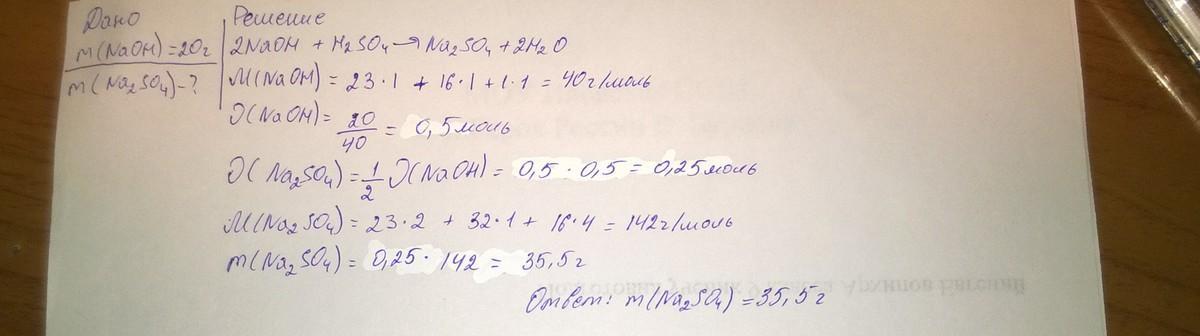 Дано
m(NaOH)=20г
m(Na₂SO₄)-?
Решение
2NaOH + H₂SO₄→Na₂SO₄+2H₂O
M(NaOH)= 23·1 + 16·1 +1·1 = 40г/моль
ν(NaOH)= 20/40 = 0,5моль
ν(Na₂SO₄)=1/2 ν(NaOH)= 0,5 · 0,5 = 0,25моль
M(Na₂SO₄)= 23·2 + 32·1 + 16·4 = 142г/моль
m(Na₂SO₄)= 0,25· 142 = 35,5г
Ответ: m(Na₂SO₄)=35,5г